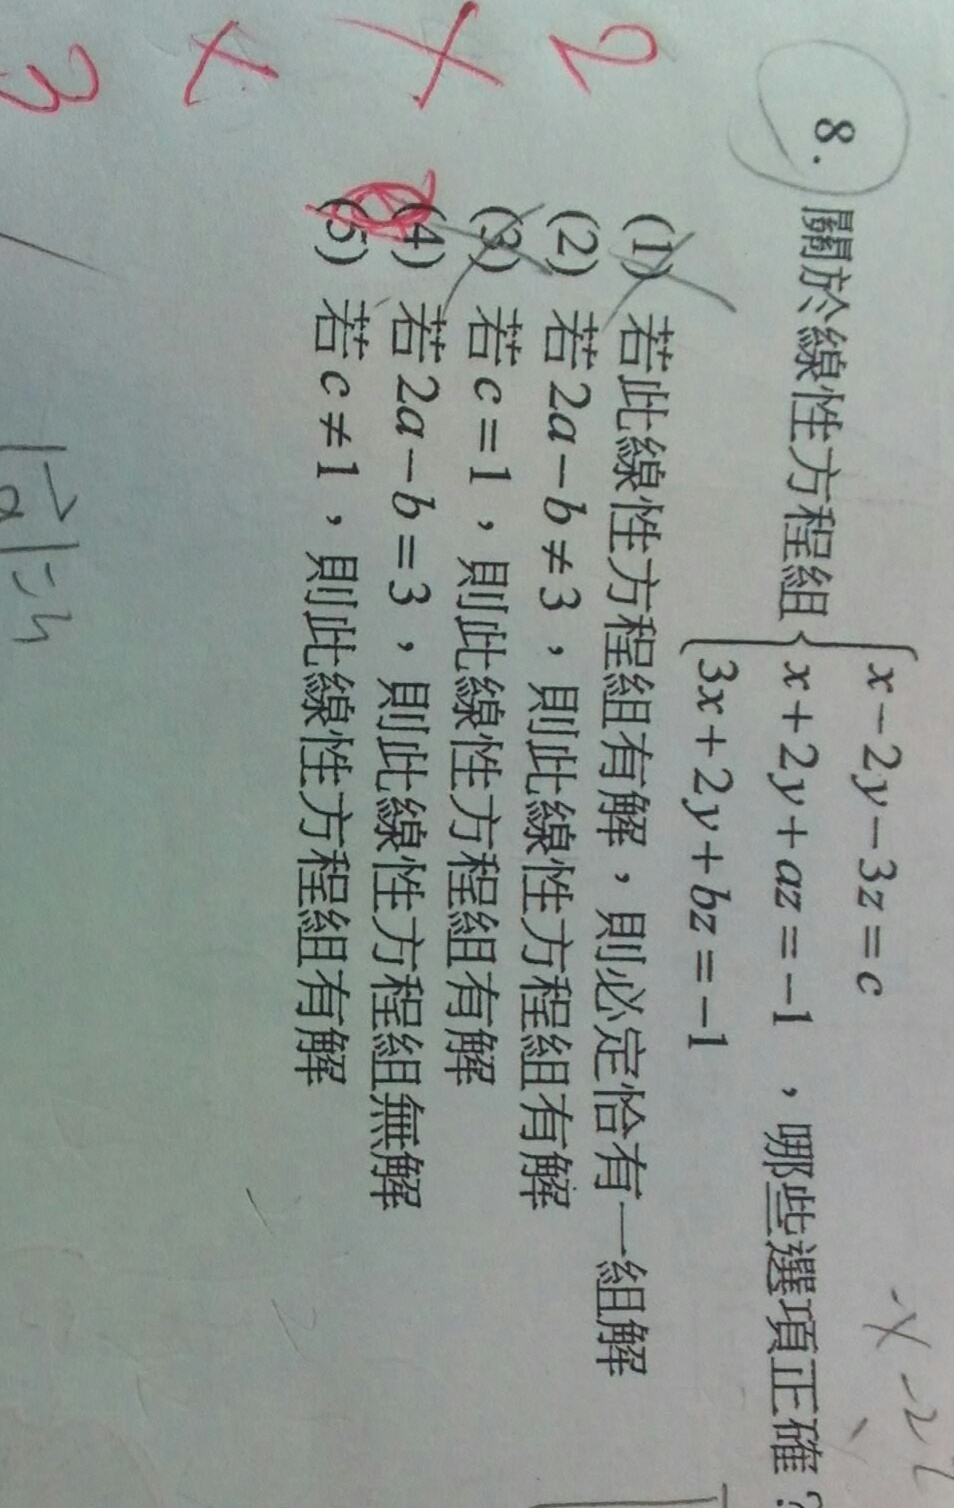 8. 關於線性方程組 { x-2y-3z=c
x+2y+az=-1 ，哪些選項正確？
3x+2y+bz=-1
(1) 若此線性方程組有解，則必定恰有一組解
(2) 若 2a-b≠3，則此線性方程組有解
(3) 若 c=1，則此線性方程組有解
(4) 若 2a-b=3，則此線性方程組無解
(5) 若 c≠1，則此線性方程組有解
2
3